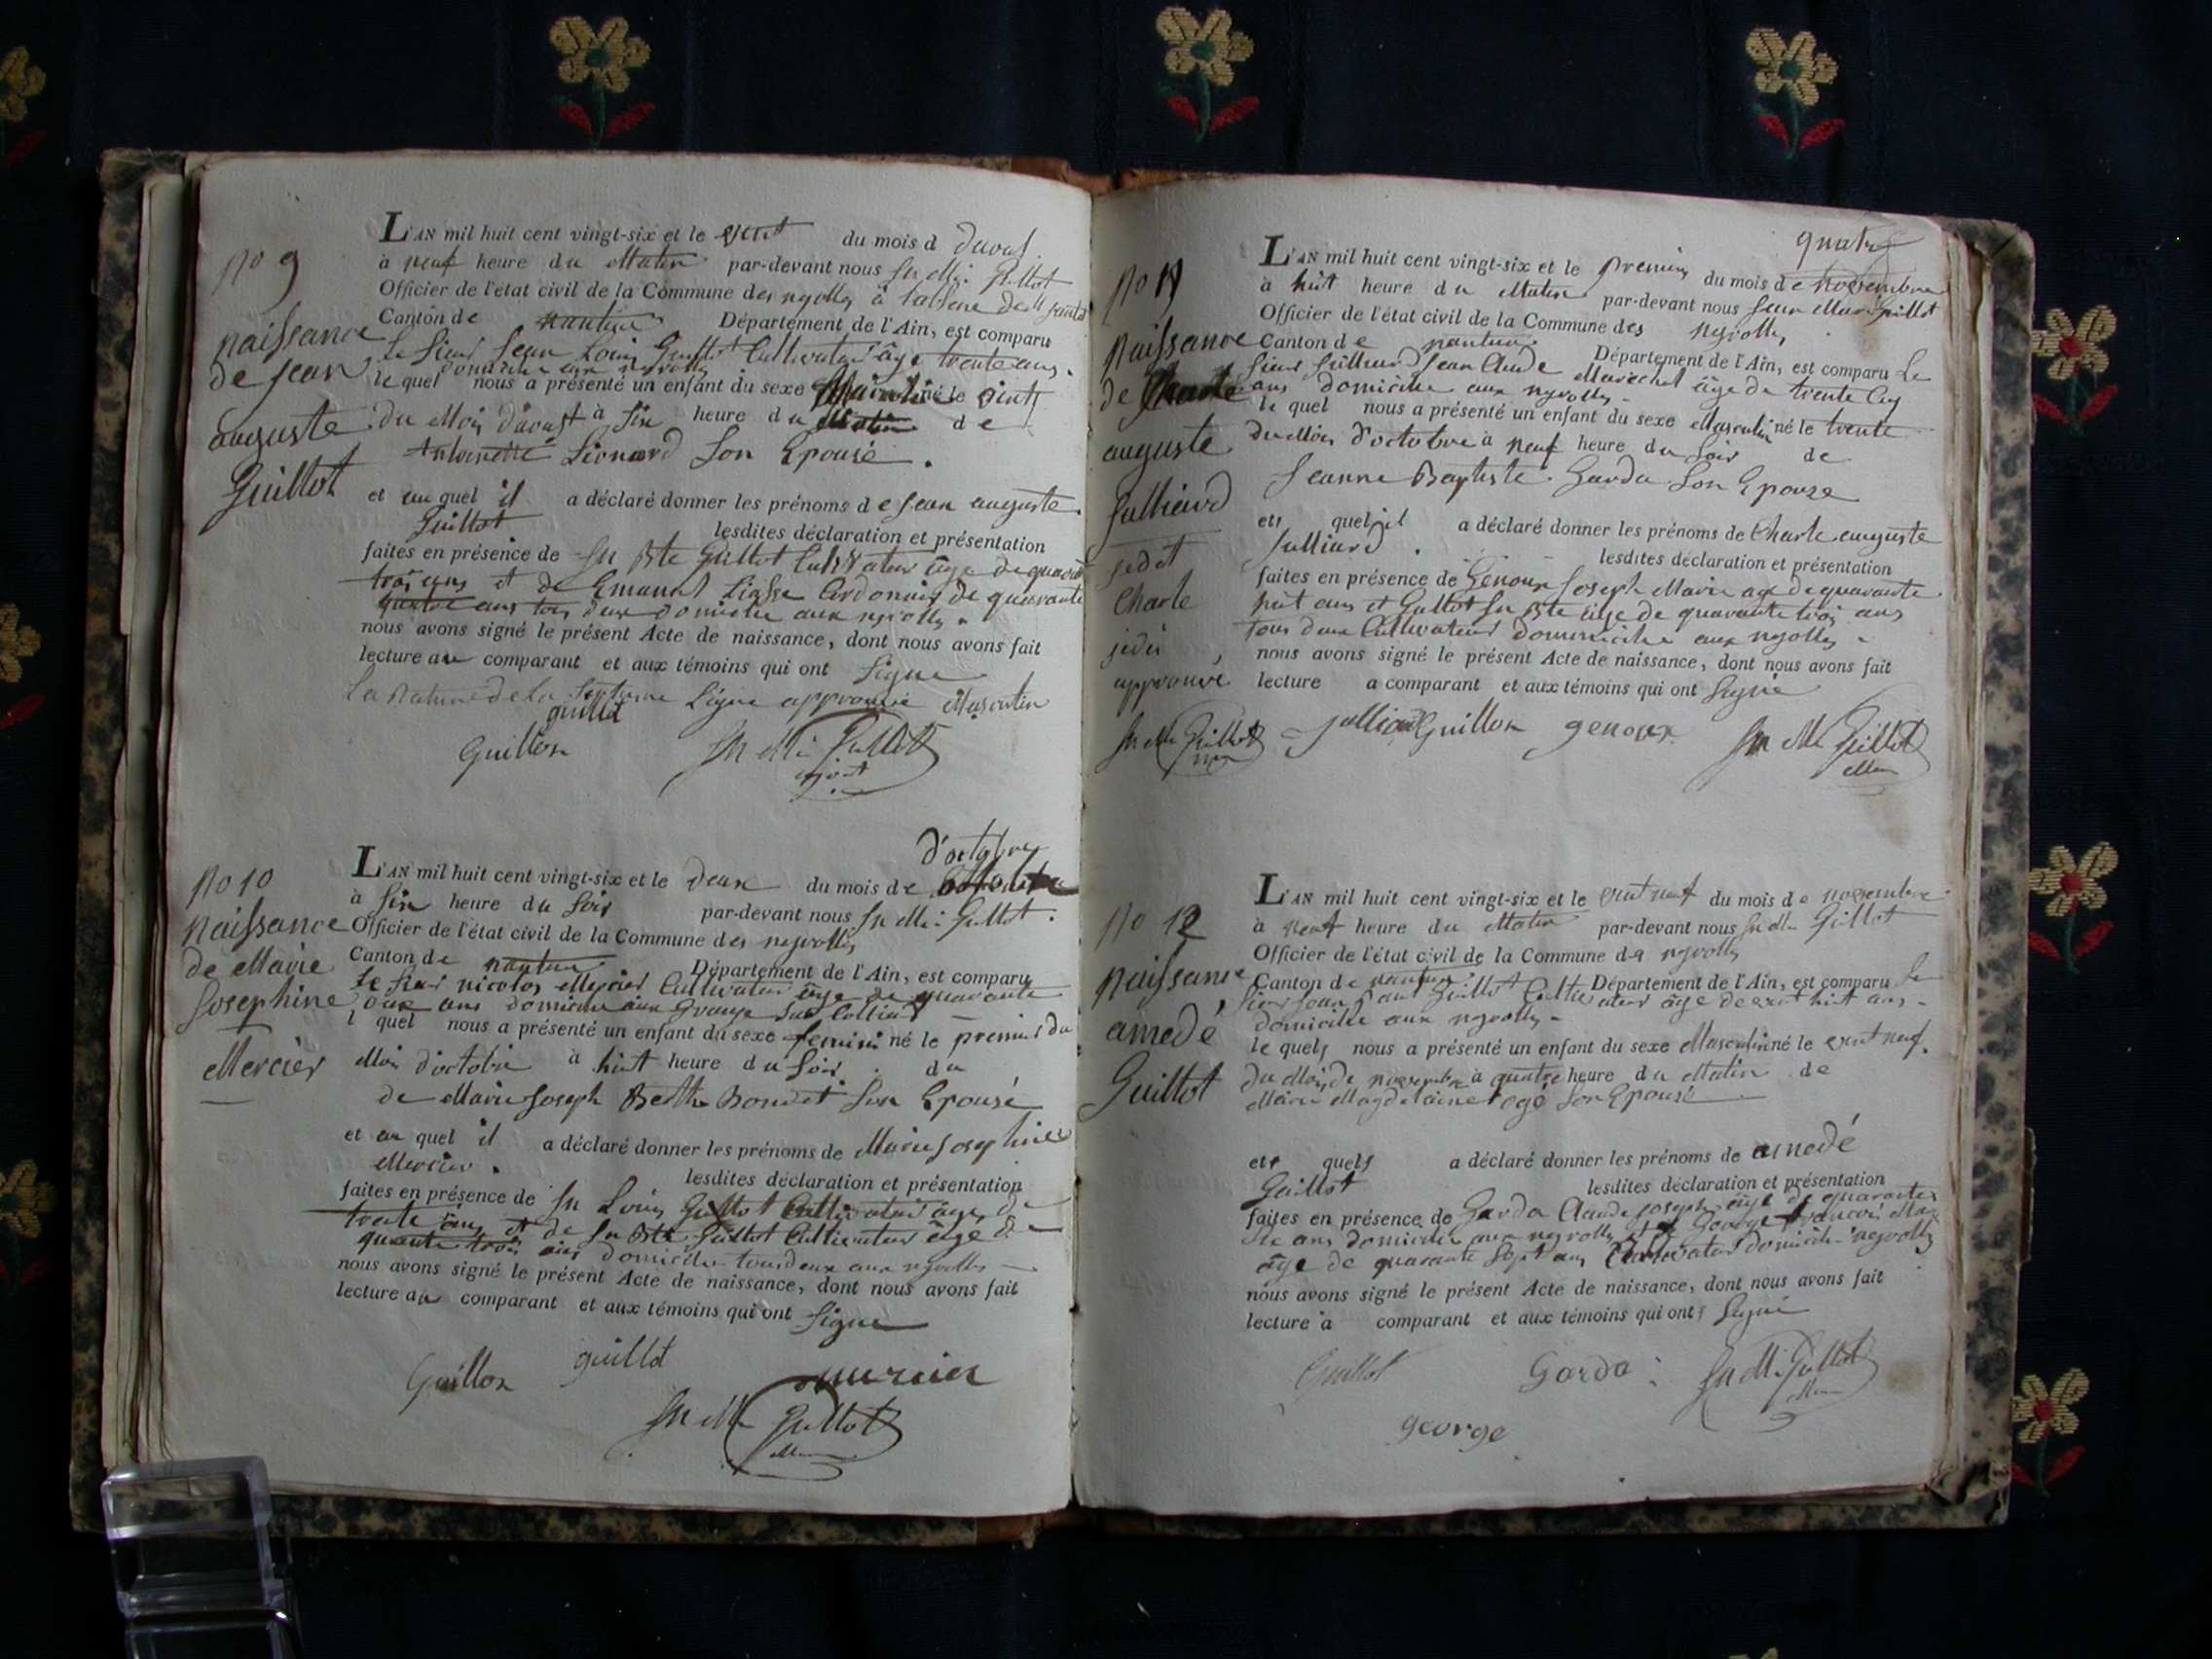 No 9
naissance
de jean
auguste
Guillot
L'AN mil huit cent vingt-six et le vint du mois d d'aout
à neuf heure du Matin par-devant nous Jn Mi Guillot
Officier de l'état civil de la Commune des neyrolles à l'absence de
Canton de nantua Département de l'Ain, est comparu
Le Sieur Jean Louis Guillot Cultivateur âge trente ans
domicilié aux neyrolles
le quel nous a présenté un enfant du sexe Masculin né le vint
du Mois d'aoust à six heure du Matin de
Antoinette Léonard Son Epouse.
et au quel il a déclaré donner les prénoms de jean auguste
Guillot lesdites déclaration et présentation
faites en présence de Jn Bte Guillot Cultivateur âge de quarante
trois ans et de Emanuel Cordonnier de quarante
quatre ans tous deux domicilié aux neyrolles
nous avons signé le présent Acte de naissance, dont nous avons fait
lecture au comparant et aux témoins qui ont signé
La rature de la septieme Ligne approuvé Masculin
guillot
Guillon Jn Mi Guillot
ajoint
No 10
naissance
de Marie
Josephine
Mercier
d'octobre
L'AN mil huit cent vingt-six et le deux du mois de
à six heure du Soir par-devant nous Jn Mi Guillot.
Officier de l'état civil de la Commune des neyrolles
Canton de nantua Département de l'Ain, est comparu
Le Sieur nicolas Mercier Cultivateur âge de quarante
onze ans domicilié aux Grange Sur
l quel nous a présenté un enfant du sexe feminin né le premier du
Mois d'octobre à huit heure du Soir du
de Marie Joseph Berthe Bondet Son Epousé
et au quel il a déclaré donner les prénoms de Marie Josephine
Mercier. lesdites déclaration et présentation
faites en présence de Jn Louis Guillot Cultivateur âge de
trente ans et de Jn Bte Guillot Cultivateur âge de
quarante trois ans domicilié tous deux aux neyrolles
nous avons signé le présent Acte de naissance, dont nous avons fait
lecture au comparant et aux témoins qui ont signé
Guillon guillot mercier
Jn Mi Guillot
No 11
naissance
de Charle
auguste
Julliard
Charle
approuvé
Jn Mi Guillot
quatre
L'AN mil huit cent vingt-six et le premier du mois de novembre
à huit heure du Matin par-devant nous Jean Marie Guillot
Officier de l'état civil de la Commune des neyrolles
Canton de nantua Département de l'Ain, est comparu Le
Sieur Julliard Jean Claude Marechal âge de trente cinq
ans domicilié aux neyrolles
le quel nous a présenté un enfant du sexe Masculin né le trente
du Mois d'octobre à neuf heure du Soir de
Jeanne Baptiste Garda Son Epouze
et quel il a déclaré donner les prénoms de Charle auguste
Julliard. lesdites déclaration et présentation
faites en présence de Genoux Joseph Marie age de quarante
huit ans et Guillot Jn Bte âge de quarante trois ans
tous deux Cultivateur domicilié aux neyrolles
nous avons signé le présent Acte de naissance, dont nous avons fait
lecture a comparant et aux témoins qui ont signé
julliard Guillon genoux Jn Mi Guillot
No 12
naissance
amedé
Guillot
L'AN mil huit cent vingt-six et le vint neuf du mois de novembre
à neuf heure du Matin par-devant nous Jn Mi Guillot
Officier de l'état civil de la Commune des neyrolles
Canton de nantua Département de l'Ain, est comparu Le
Sieur Jean Guillot Cultivateur âge de vint huit ans
domicilié aux neyrolles
le quel nous a présenté un enfant du sexe Masculin né le vint neuf
du Mois de novembre à quatre heure du Matin de
Marie Magdelaine Son Epousé
et quel a déclaré donner les prénoms de amedé
Guillot lesdites déclaration et présentation
faites en présence de Garda Claude joseph âge de quarante
ans domicilié aux neyrolles et de George francois
âge de quarante Sept ans Cultivateur domicilié neyrolles
nous avons signé le présent Acte de naissance, dont nous avons fait
lecture à comparant et aux témoins qui ont signé
Guillot Garda Jn Mi Guillot
george